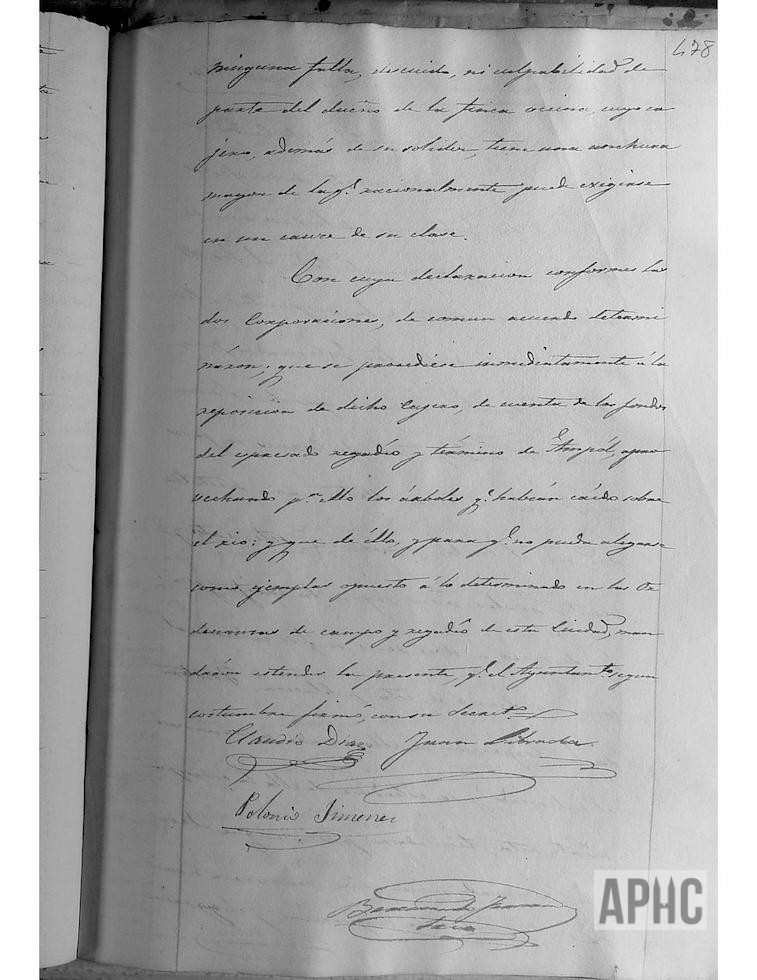 478
ninguna falta, descuido, ni culpabilidad de
parte del dueño de la finca vecina, cuyo ca
jero, además de su solidez, tiene una anchura
mayor de la q.e racionalmente puede exigirse
en un cauce de su clase.
Con cuya declaracion conformes las
dos Corporaciones, de comun acuerdo determi
náron, que se procediese inmediatamente á la
reposicion de dicho Cajero, de cuenta de los fondos
del espresado regadío y término de Ampól, apro
vechando p.a ello los árboles q.e habían caído sobre
el rio: y que de ello, y para q.e no pueda alegarse
como ejemplar opuesto á lo determinado en las Or
denanzas de campo y regadío de esta Ciudad, man
dáron estender la presente, q.e el Ayuntam.to segun
costumbre firmó, con su Secret.o
Claudio Diaz Juan
Polonio Jimenez
APHC